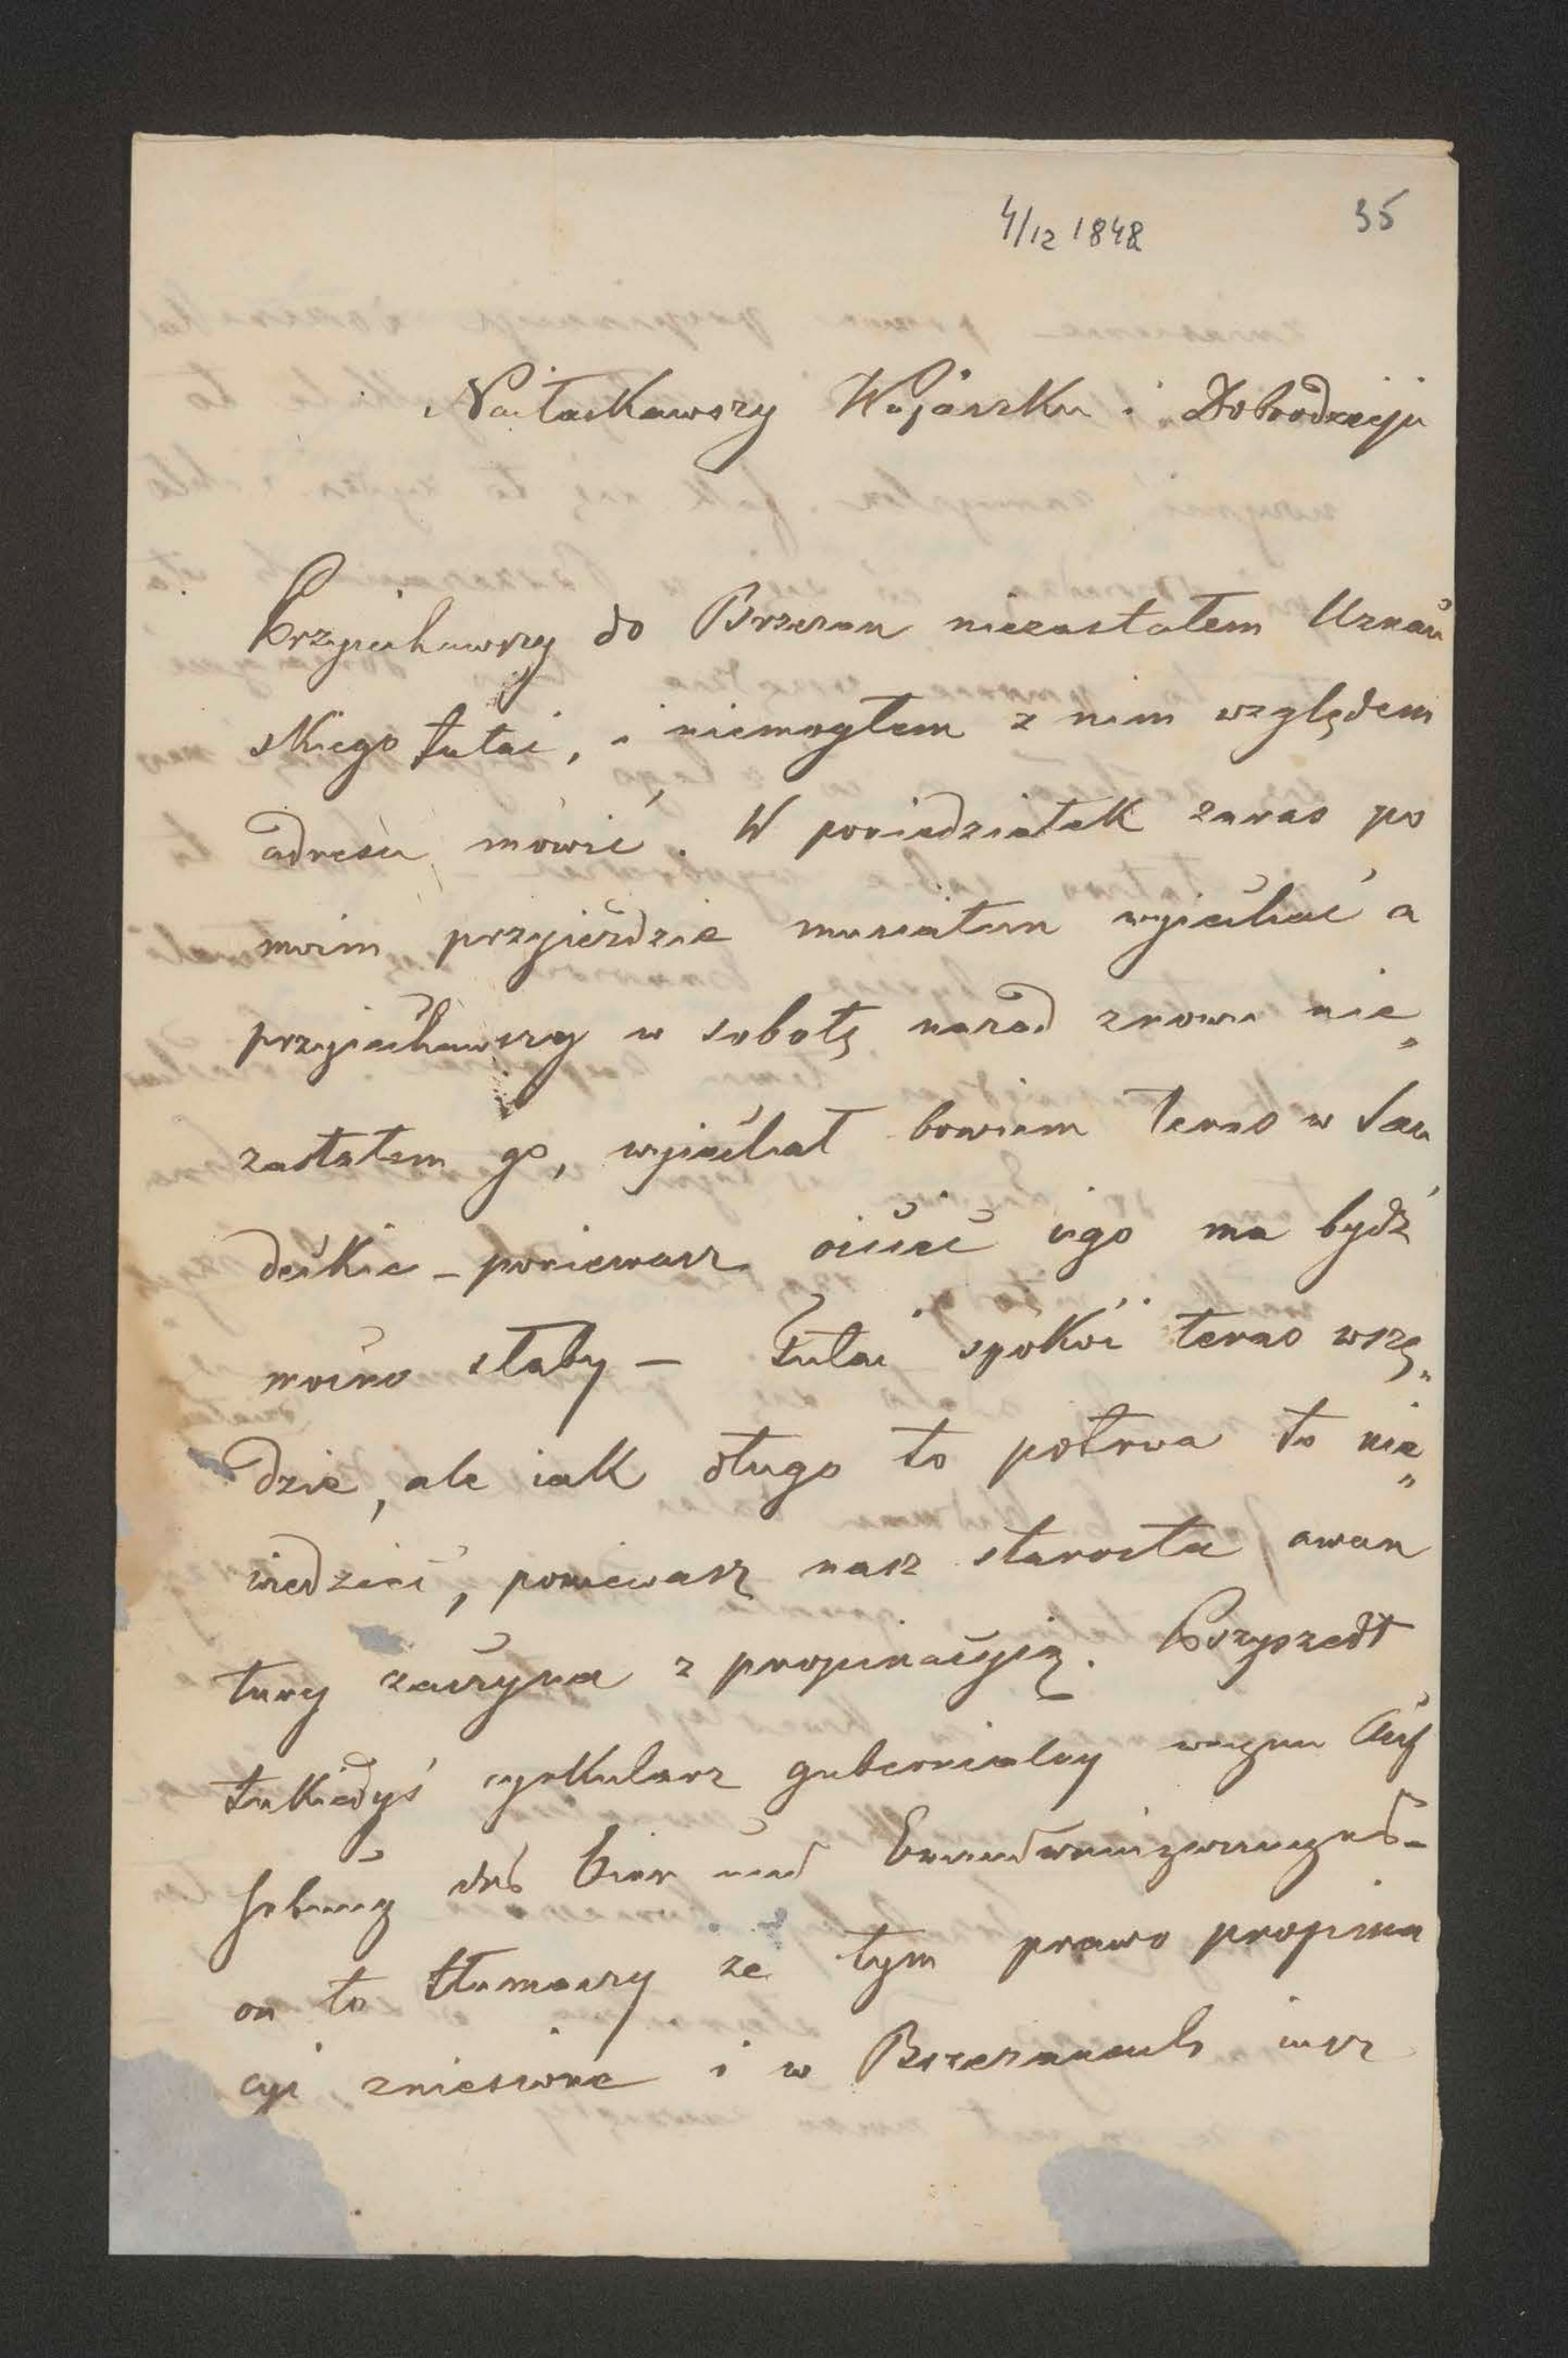 4/12 1848
35
Naiłaskawszy Wujaszku i Dobrodzieju
Przyiechawszy do Brzezan niezastałem Uznań
skiego tutai, i niemogłem z nim względem
adresu mówić. W poniedziałek zaras po
moim przyieździe musiałem wyiechać a
przyiechawszy w sobotę nazad znowu nie„
zastałem go, wyiechał bowiem teras w San
deckie – poniewasz oiciec iego ma bydź
mocno słaby – Tutai spokoi teras wszę„
dzie, ale iak długo to potrwa to nie„
wiedzieć, poniewasz nasz starosta awan
tury zaczyna z propinacyią. Przyszedł
tukiedyś cyrkularz gubernialny wegen Auf
hebung des Bier und Brandweinzwanges –
on to tłumaczy ze tym prawo propina
cyi zniesione i w Brzezanach iusz